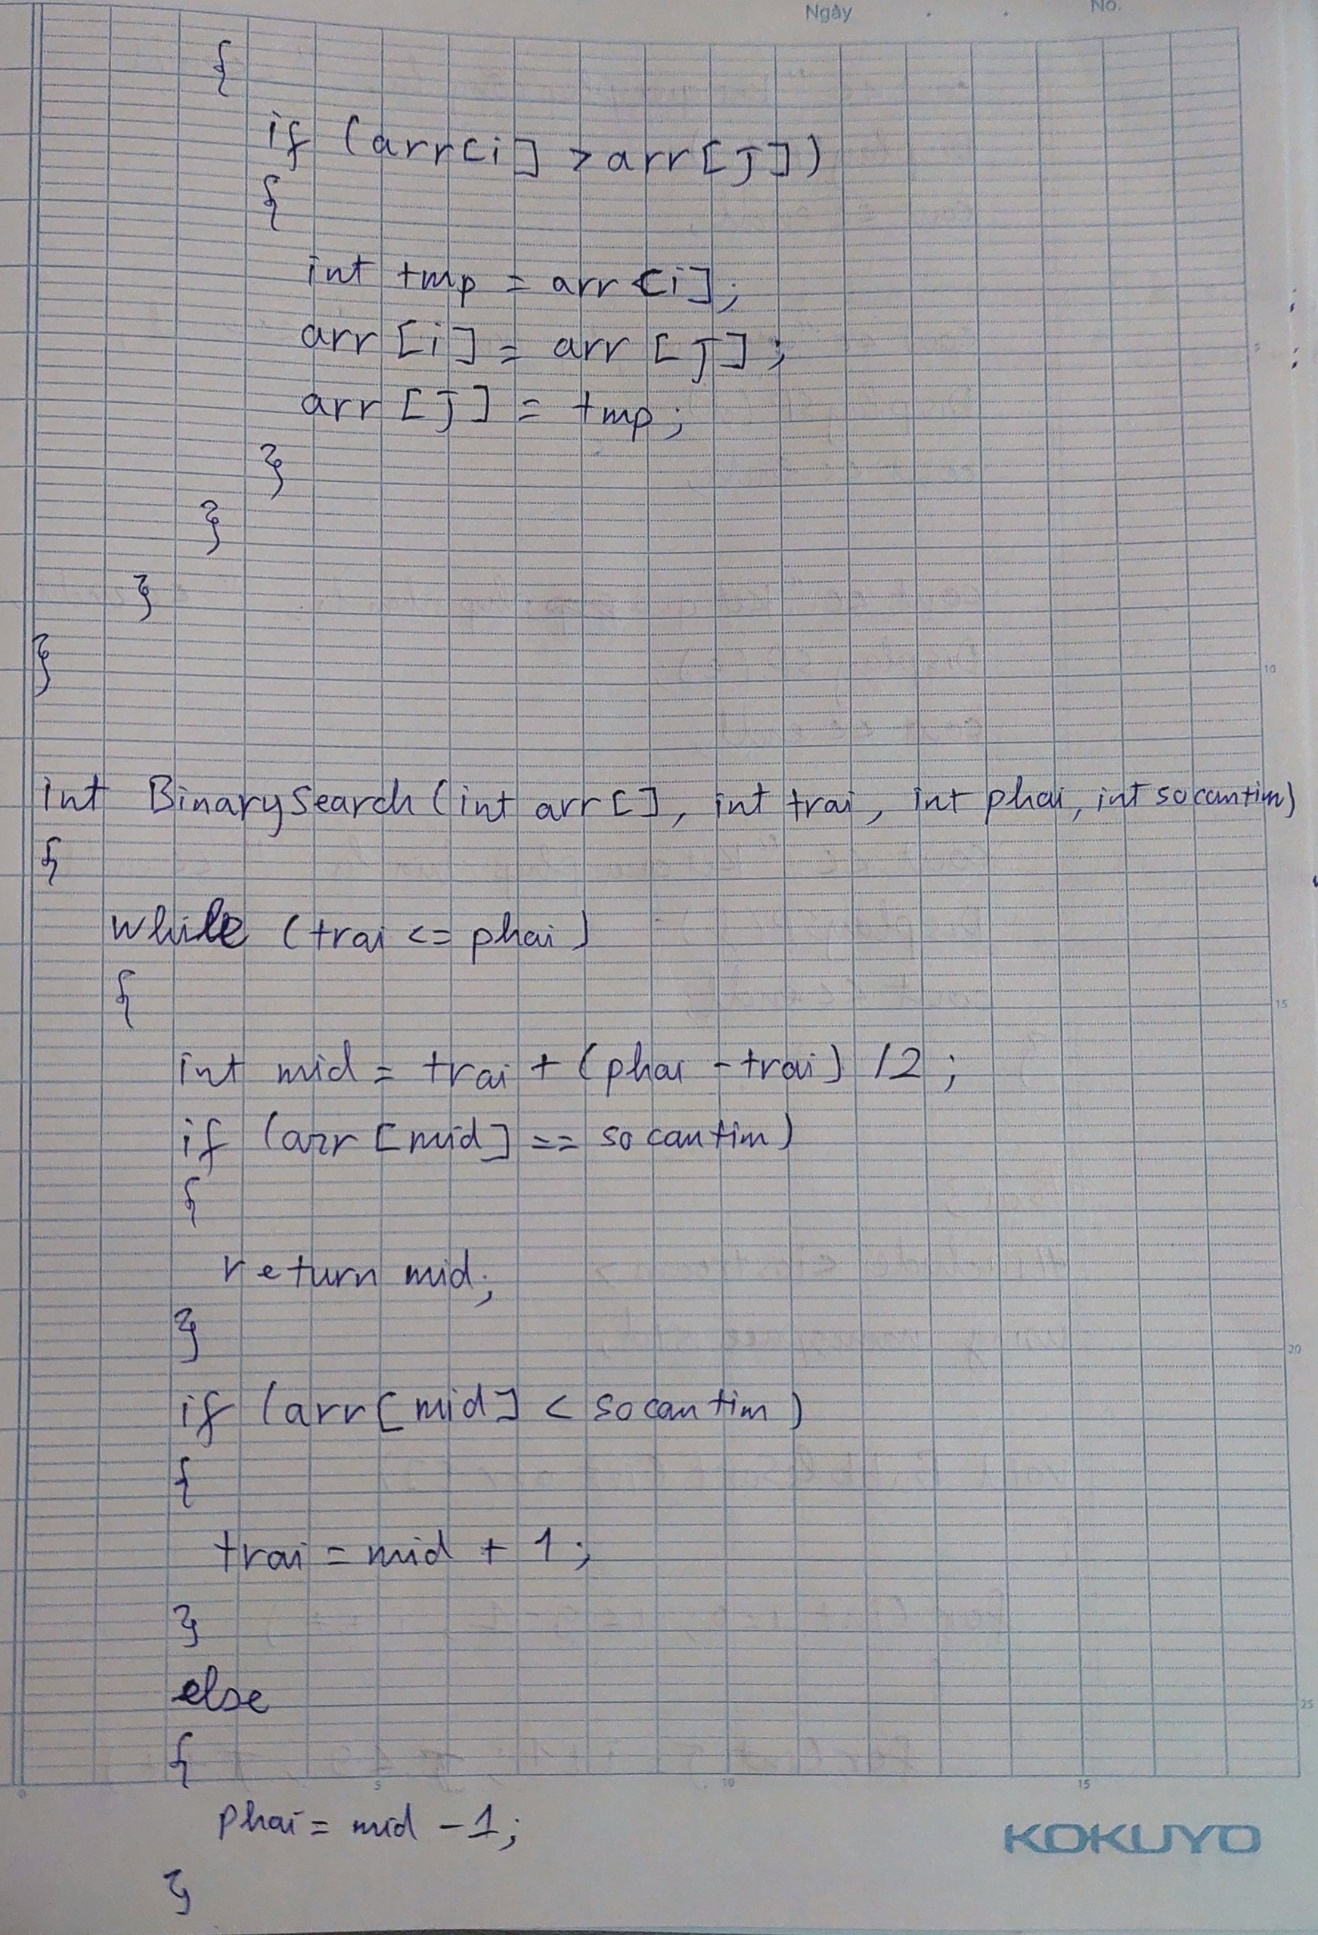 Ngày . . No.
{
if (arr[i] > arr[j])
{
int tmp = arr[i];
arr[i] = arr[j];
arr[j] = tmp;
}
}
}
}
int BinarySearch(int arr[], int trai, int phai, int socantim)
{
while (trai <= phai)
{
int mid = trai + (phai - trai) /2;
if (arr[mid] == socantim)
{
return mid;
}
if (arr[mid] < socantim)
{
trai = mid + 1;
}
else
{
phai = mid - 1;
}
5
10
15
20
25
0 5 10 15
KOKUYO